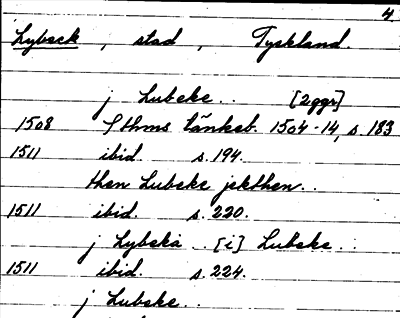 4
Lybeck, stad, Tyskland.
j Lubeke.. [2ggr]
1508 Sthms tänkeb. 1504-14, s. 183
1511 ibid. s. 194.
then Lubeske jekthen..
1511 ibid. s. 220.
j Lybeka.. [i] Lubeke..
1511 ibid. s. 224.
j Lubeke..